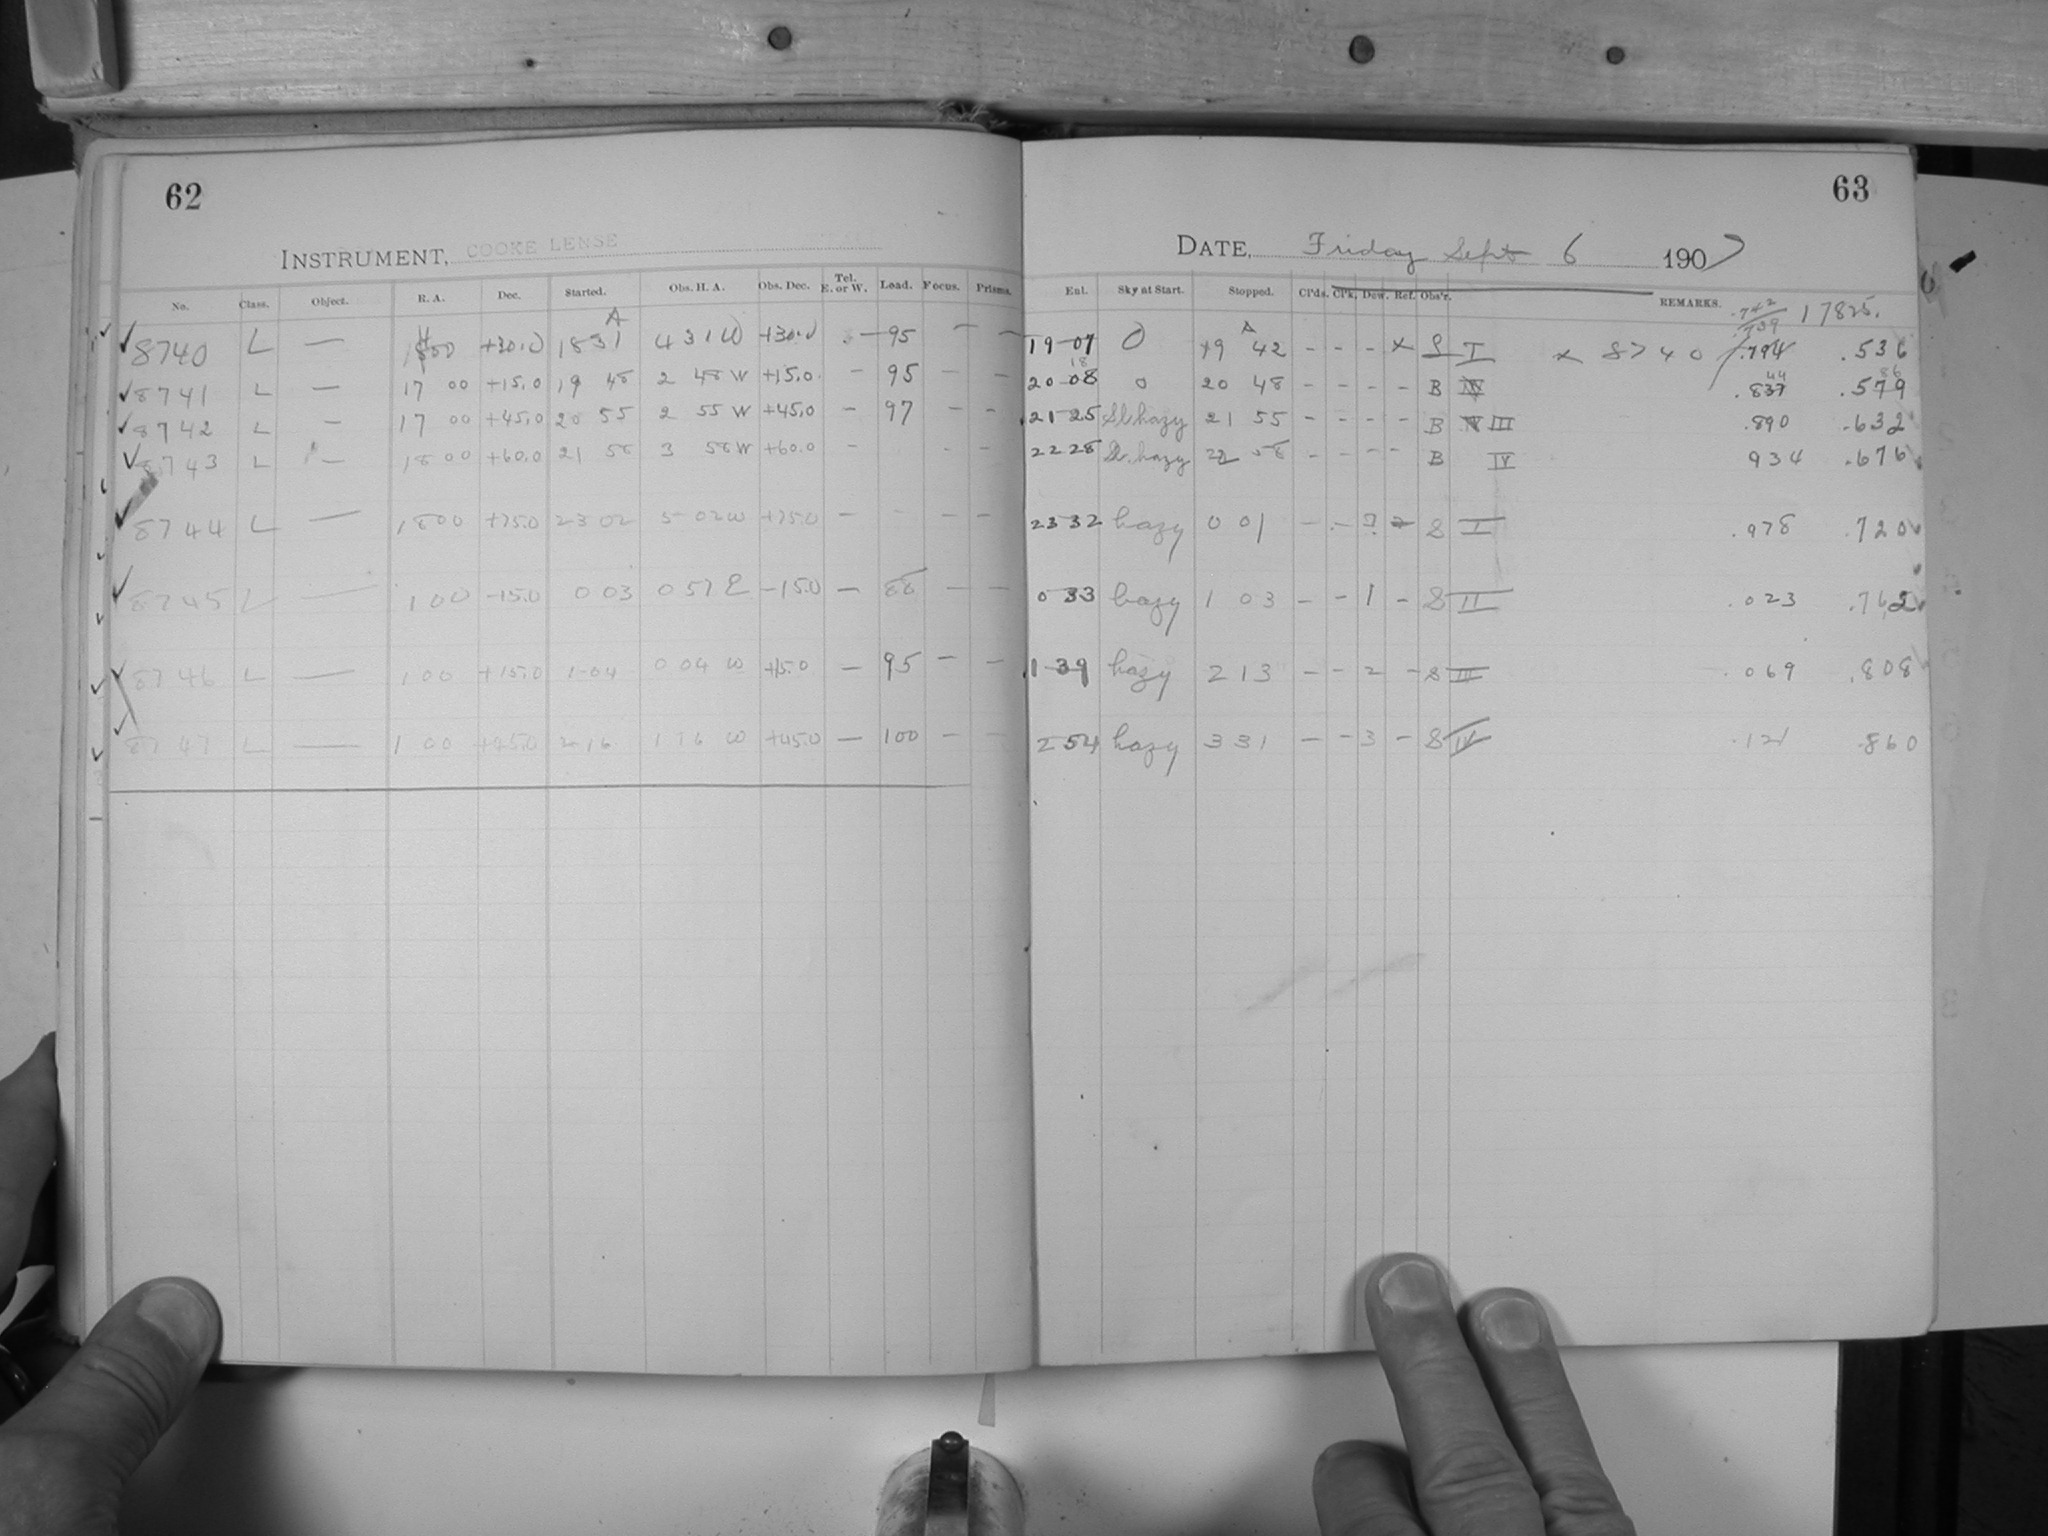 62
INSTRUMENT, COOKE LENSE
No. Class. Object. R. A. Dec. Started. Obs. H. A. Obs. Dec. Tel. E. or W. Load. Focus. Prisms.
A
8740 L — +30.0 1831 4 31 W +30.0 — 95 — —
8741 L — 17 00 +15.0 19 48 2 48 W +15.0 — 95 — —
8742 L — 17 00 +45.0 20 55 2 55 W +45.0 — 97 — —
8743 L — 18 00 +60.0 21 58 3 58 W +60.0 — - -
8744 L — 18 00 +75.0 23 02 5 02 W +75.0 — - — —
8745 L — 1 00 -15.0 0 03 0 57 E -15.0 — — —
8746 L — 1 00 +15.0 1 04 0 04 W +15.0 — 95 — —
8747 L — 1 00 +45.0 2 16 1 16 W +45.0 — 100 — —
63
DATE, Friday Sept 6 1907
Ent. Sky at Start. Stopped. CPds. CPk. Dew. Ref. Obs'r. REMARKS.
.742
.739 17825.
A
19 07 0 19 42 - - - x S I x 8740 .794 .536
18 44 86
20 08 0 20 48 - - - - B .837 .579
21 25 Sl. hazy 21 55 - - - - B III .890 .632
22 28 Sl. hazy 22 58 - - - - B IV 934 .676
23 32 hazy 0 01 - - S I .978 .720
0 33 hazy 1 03 - - 1 - S II .023
1 39 hazy 2 13 - - 2 - S III .069 .808
2 54 hazy 3 31 - - 3 - S IV .121 .860